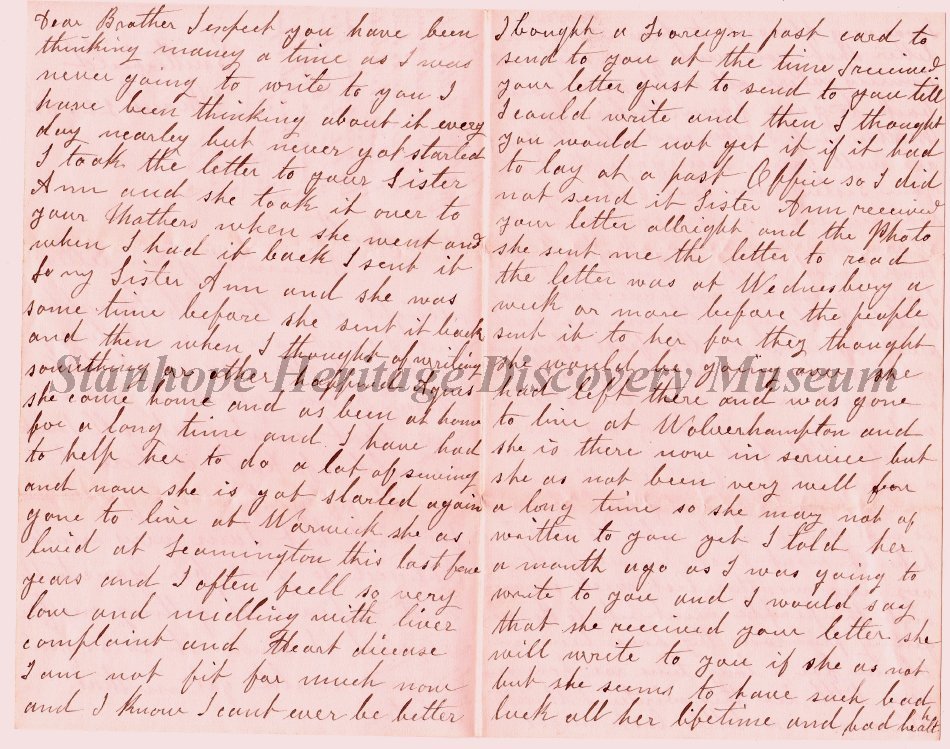 Dear Brother I expect you have been
thinking maney a time as I was
never going to write to you I
have been thinking about it every
day nearley but never got started
I took the letter to your Sister
Ann and she took it over to
your Mathers when she went and
when I had it back I sent it
to my Sister Ann and she was
some time before she sent it back
and then when I thought of writing
something or other
she come home and as been at home
for a long time and I have had
to help her to do a lot of sewing
and now she is got started again
gone to live at Warwick she as
lived at Leamington this last
years and I often feell so very
low and midling with liver
complaint and Heart dicease
I am not fit for much now
and I know I cant ever be better
I bought a Foreign post card to
send to you at the time I received
your letter just to send to you till
I could write and then I thought
you would not get it if it had
to lay at a post Office so I did
not send it Sister Ann received
your letter allright and the Photo
she sent me the letter to read
the letter was at Wednesbury a
week or more before the people
sent it to her for they thought
she would be going over she
had left there and was gone
to live at Wolverhampton and
she is there now in service but
she as not been very well for
a long time so she may not as
written to you yet I told her
a month ago as I was going to
write to you and I would say
that she received your letter she
will write to you if she as not
but she seems to have such bad
luck all her lifetime and bad healt
Stanhope Heritage Discovery Museum